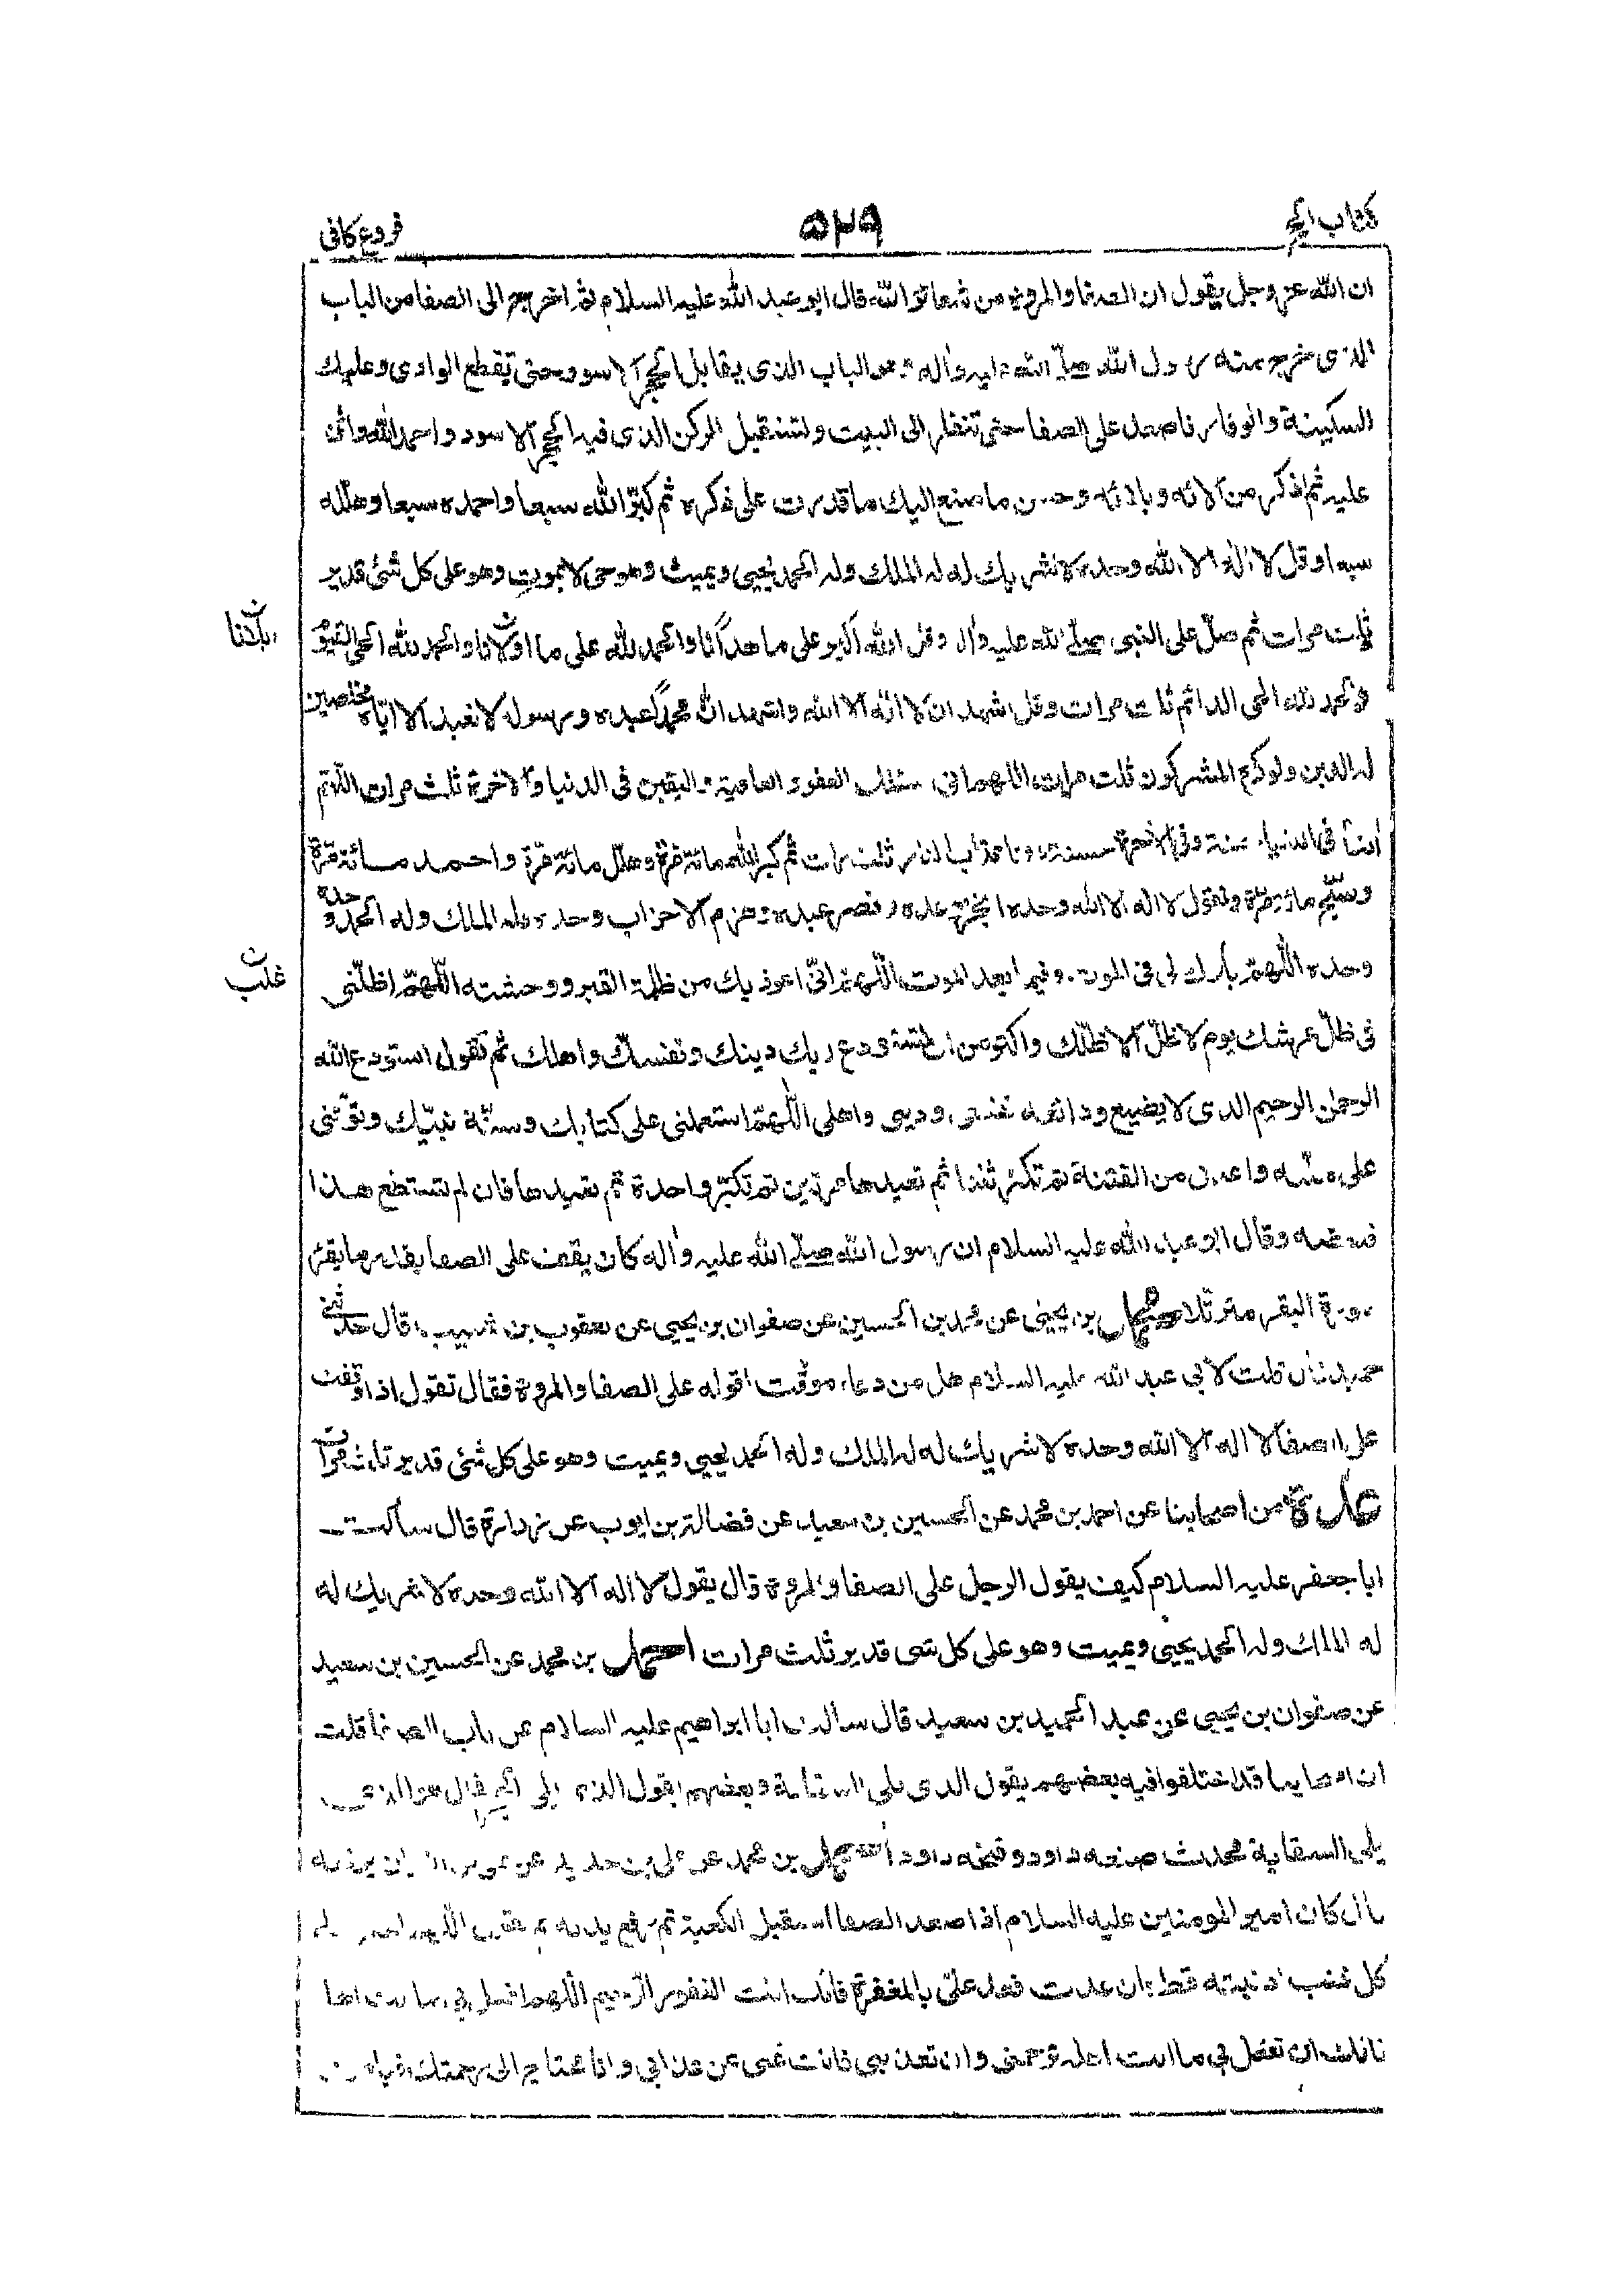 كتاب الحج
٥٢٩
فروع كافى
ان الله عز وجل يقول ان الصفا والمروة من شعائر الله قال ابو عبد الله عليه السلام ثم اخرج الى الصفا من الباب
الذى خرج منه رسول الله صلى الله عليه واله وهو الباب الذى يقابل الحجر الاسود حتى تقطع الوادى وعليك
السكينة والوقار فاصعد على الصفا حتى تنظر الى البيت وتستقبل الركن الذى فيه الحجر الاسود واحمد الله واثن
عليه ثم اذكر من آلائه وبلائه وحسن ما صنع اليك ما قدرت على ذكره ثم كبّر الله سبعا واحمده سبعا وهلّله
سبعا وقل لا اله الا الله وحده لا شريك له له الملك وله الحمد يحيى ويميت وهو حى لا يموت وهو على كل شئ قدير
ثلث مرات ثم صلّ على النبى صلى الله عليه وآله وقل الله اكبر على ما هدانا والحمد لله على ما اولانا والحمد لله الحى القيوم
والحمد لله الحى الدائم ثلث مرات وقل اشهد ان لا اله الا الله واشهد ان محمدا عبده ورسوله لا نعبد الا اياه مخلصين
له الدين ولو كره المشركون ثلث مرات اللهم انى اسئلك العفو والعافية واليقين فى الدنيا والاخرة ثلث مرات اللهم
آتنا فى الدنيا حسنة وفى الاخرة حسنة وقنا عذاب النار ثلث مرات ثم كبر الله مائة مرّة وهلل مائة مرّة واحمد مائة مرّة
وسبّح مائة مرّة وتقول لا اله الا الله وحده انجز وعده ونصر عبده وهزم الاحزاب وحده فله الملك وله الحمد وحده
وحده اللهمّ بارك لى فى الموت وفيما بعد الموت اللهمّ انّى اعوذ بك من ظلمة القبر ووحشته اللهمّ اظلّنى
فى ظلّ عرشك يوم لا ظلّ الا ظلّك واكثر من ان تستودع ربك دينك ونفسك واهلك ثم تقول استودع الله
الرحمن الرحيم الذى لا يضيع ودائعه نفسى ودينى واهلى اللهمّ استعملنى على كتابك وسنّة نبيّك وتوفّنى
على ملّته واعذنى من الفتنة ثم تكبّر ثلثا ثم تعيدها مرتين ثم تكبّر واحدة ثم تعيدها فان لم تستطع هذا
فبعضه وقال ابو عبد الله عليه السلام ان رسول الله صلى الله عليه واله كان يقف على الصفا بقدر ما يقرء
سورة البقرة مترتلا محمد بن يحيى عن محمد بن الحسين عن صفوان بن يحيى عن يعقوب بن شعيب قال حدثنى
جميل قال قلت لابى عبد الله عليه السلام هل من دعاء موقّت اقوله على الصفا والمروة فقال تقول اذا وقفت
على الصفا لا اله الا الله وحده لا شريك له له الملك وله الحمد يحيى ويميت وهو على كل شئ قدير ثلث مرّات
عدة من اصحابنا عن احمد بن محمد عن الحسين بن سعيد عن فضالة بن ايوب عن زرارة قال سألت
ابا جعفر عليه السلام كيف يقول الرجل على الصفا والمروة قال يقول لا اله الا الله وحده لا شريك له
له الملك وله الحمد يحيى ويميت وهو على كل شئ قدير ثلث مرات احمد بن محمد عن الحسين بن سعيد
عن صفوان بن يحيى عن عبد الحميد بن سعيد قال سالت ابا ابراهيم عليه السلام عن باب الصفا قلت
ان اصحابنا قد اختلفوا فيه بعضهم يقول الذى يلى السقاية وبعضهم يقول الذى يلى الحجر فقال هو الذى
يلى السقاية محدث صنعه داود وفتحه داود احمد بن محمد عن على بن حديد عن
قال كان امير المومنين عليه السلام اذا صعد الصفا استقبل الكعبة ثم رفع يديه ثم يقول اللهم اغفر لى
كل ذنب اذنبته قط فان عدت فعد علىّ بالمغفرة فانك انت الغفور الرحيم اللهم افعل بى ما انت اهله
فانك ان تفعل بى ما انت اهله ترحمنى وان تعذبنى فانت غنى عن عذابى وانا محتاج الى رحمتك فيا
ابلانا ن
غلب ن